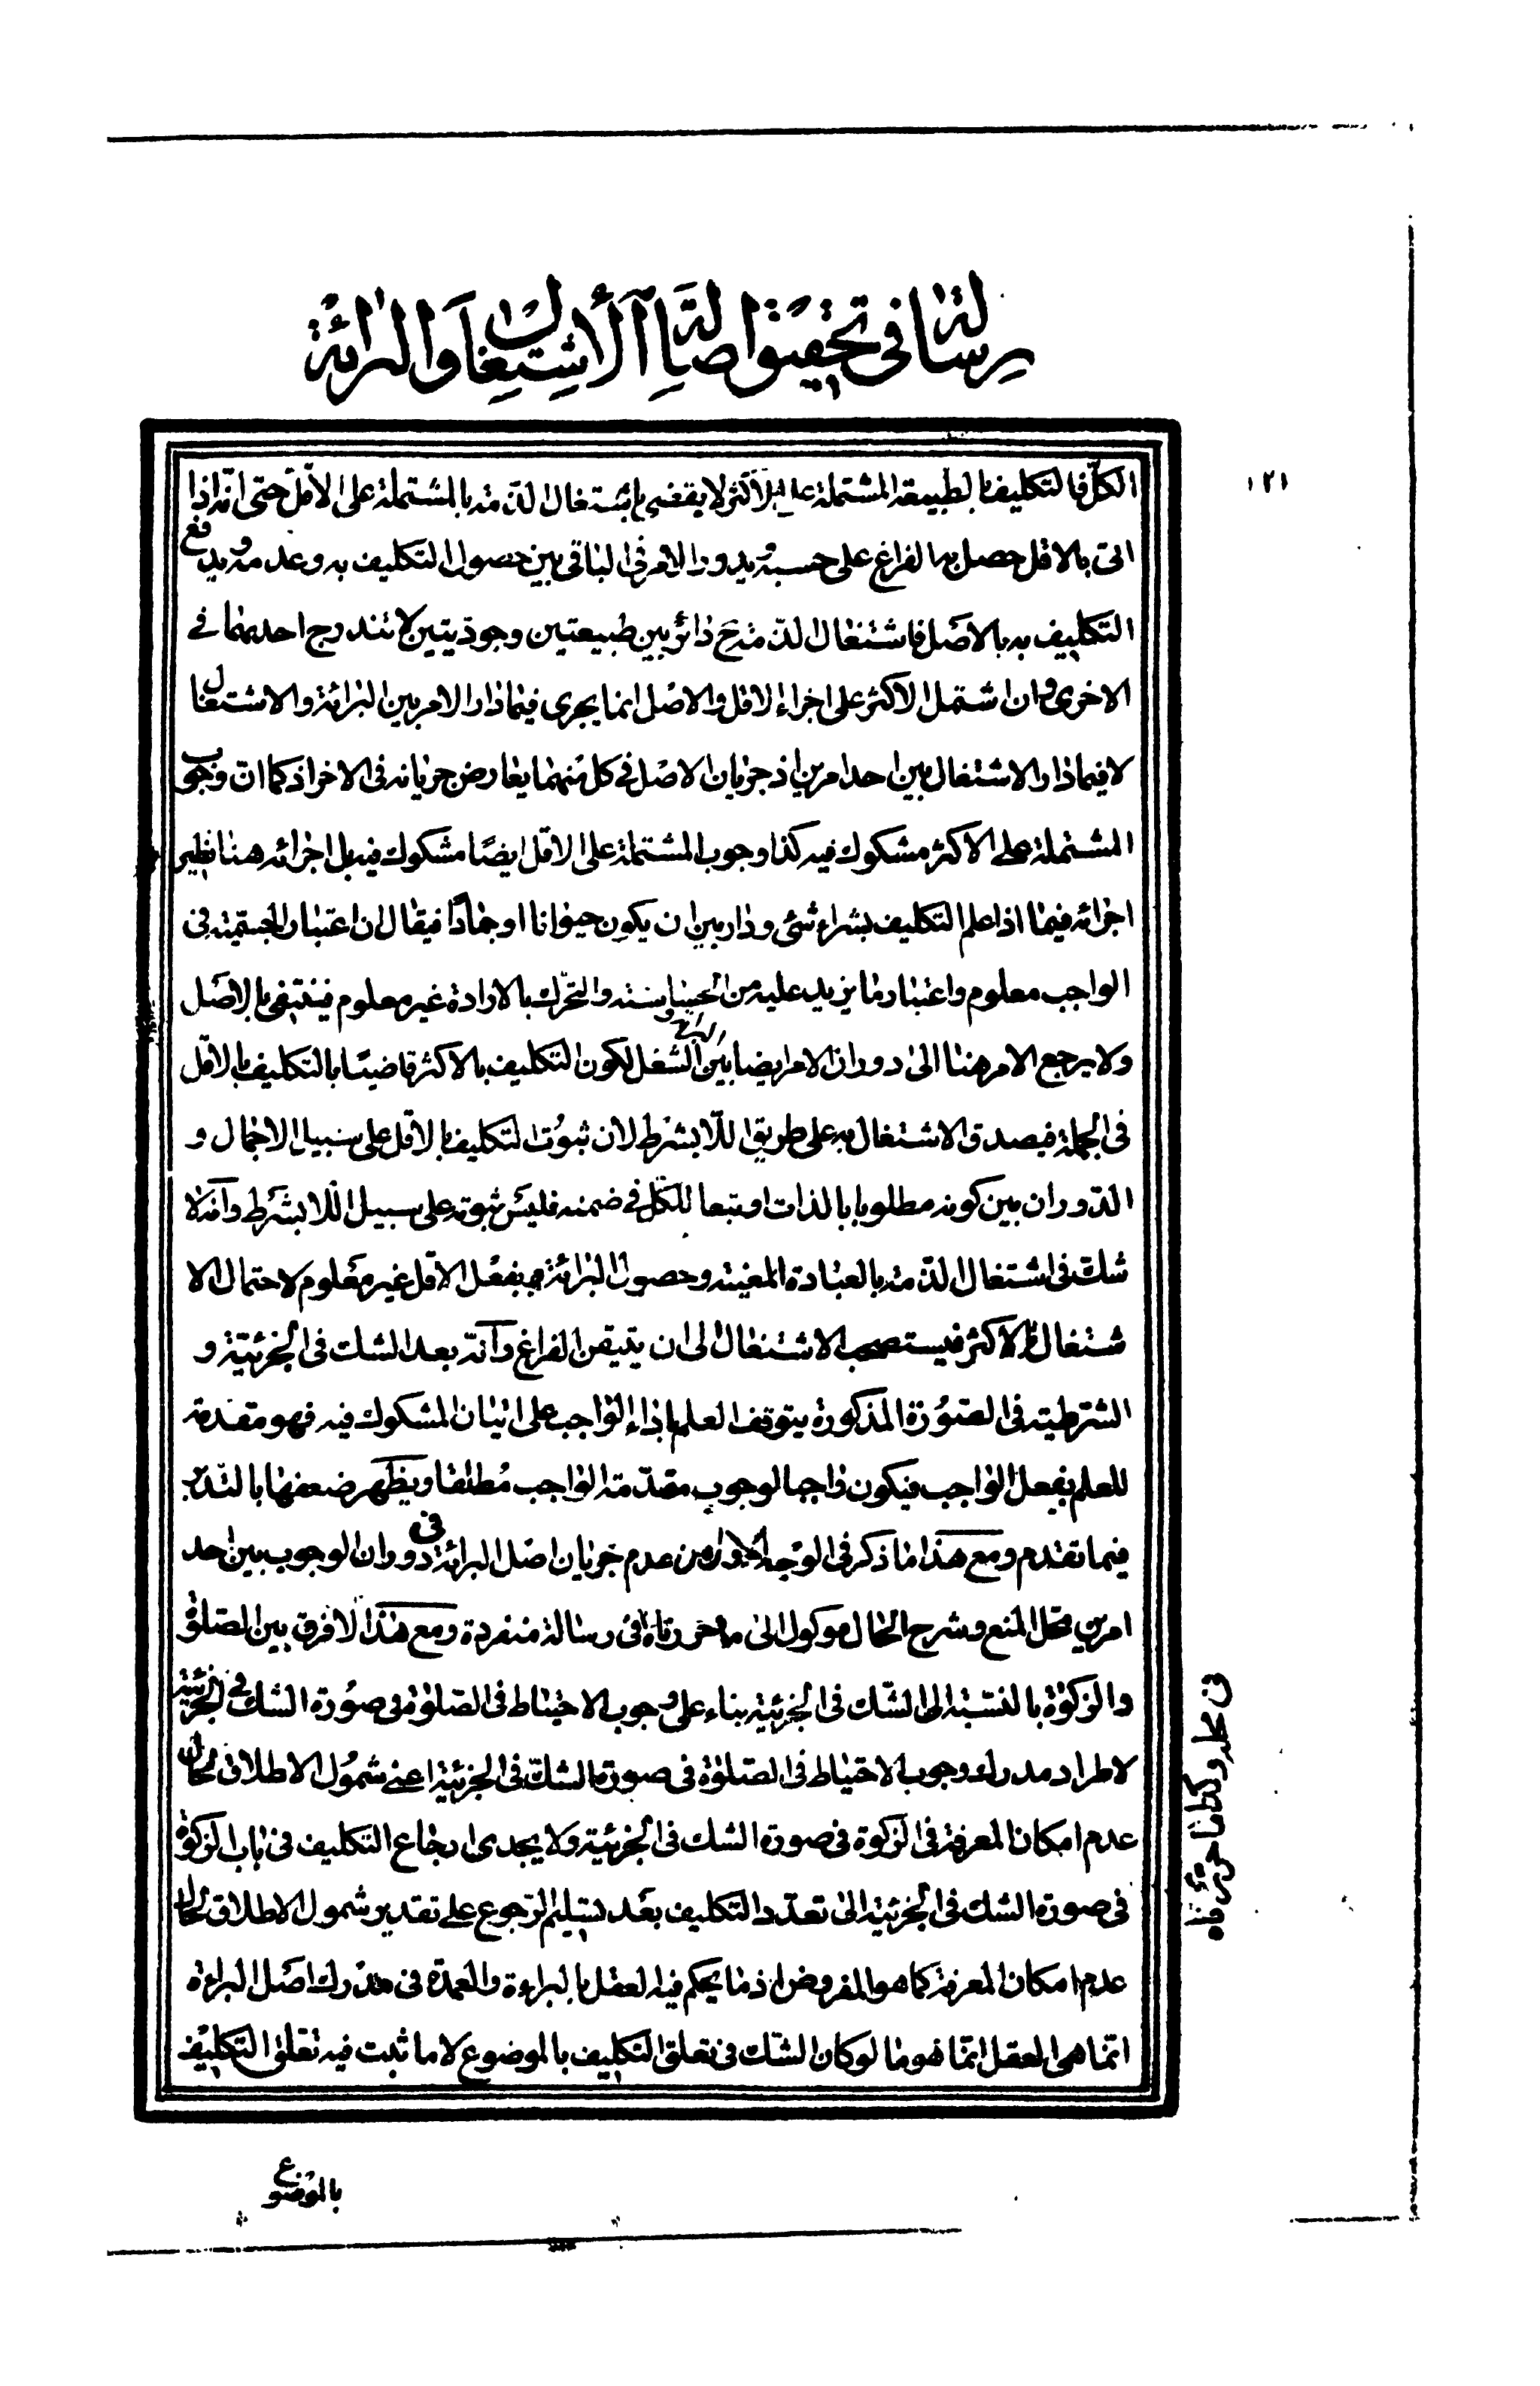 رسالة في تحقيق اصالة الاشتغال والبرائة
١٢١
الكلّ فالتكليف بالطبيعة المشتملة على الأكثر لا يقضي باشتغال الذمّة بالمشتملة على الاقلّ حتى انّه اذا
اتى بالاقل حصل به الفراغ على حسبه ويدور الامر في الباقي بين حصول التكليف به وعدمه ويدفع
التكليف به بالاصل فاشتغال الذمّة ح دائر بين طبيعتين وجوديتين لا تندرج احديهما في
الاخرى وان اشتمل الاكثر على اجزاء الاقل والاصل انما يجرى فيما دار الامر بين البرائة والاشتغال
لا فيما دار الاشتغال بين احد امرين اذ جريان الاصل في كل منهما يعارض جريانه في الاخر اذ كما ان وجوب
المشتملة على الاكثر مشكوك فيه كذا وجوب المشتملة على الاقل ايضًا مشكوك فيه بل اجرائه هنا نظير
اجرائه فيما اذا علم التكليف بشراء شئ ودار بين ان يكون حيوانا او جمادًا فيقال ان اعتبار الجسمية في
الواجب معلوم واعتبار ما يزيد عليه من الحساسة والتحرّك بالارادة غير معلوم فينتفى بالاصل
ولا يرجع الامر هنا الى دوران الامر ايضا بين البرائة والشغل لكون التكليف بالاكثر قاضيًا بالتكليف بالاقل
في الجملة فيصدق الاشتغال به على طريق اللّا بشرط لان ثبوت التكليف بالاقل على سبيل الاجمال و
الدوران بين كونه مطلوبا بالذات او تبعا للكل في ضمنه فليس ثبوته على سبيل اللا بشرط وانّه لا
شك في اشتغال الذمّة بالعبادة المعينة وحصول البرائة بفعل الاقل غير معلوم لاحتمال الا
شتغال بالاكثر فيستصحب الاشتغال الى ان يتيقن الفراغ وانّه بعد الشك في الجزئية و
الشرطية في الصورة المذكورة يتوقف العلم باداء الواجب على اتيان المشكوك فيه فهو مقدمة
للعلم بفعل الواجب فيكون واجبا لوجوب مقدّمة الواجب مُطلقا ويظهر ضعفها بالتدبّر
فيما تقدم ومع هذا ما ذكر في الوجه الاول من عدم جريان اصل البرائة في دوران الوجوب بين احد
امرين محل المنع وشرح الحال موكول الى ما حررناه في رسالة منفردة ومع هذا لا فرق بين الصلوة
والزكوة بالنسبة الى الشك في الجزئية بناء على وجوب الاحتياط في الصلوة في صورة الشك في الجزئية
لاطراد مدرك وجوب الاحتياط في الصلوة في صورة الشك في الجزئية اعني شمول الاطلاق لحال
عدم امكان المعرفة في الزكوة في صورة الشك في الجزئية ولا يجدى ارجاع التكليف في باب الزكوة
في صورة الشك في الجزئية الى تعدّد التكليف بعد تسليم الرجوع على تقدير شمول الاطلاق لحال
عدم امكان المعرفة كما هو المفروض اذ ما يحكم فيه العقل بالبراءة والعمدة في مدرك اصل البراءة
انّما هى العقل انّما هو ما لو كان الشك في تعلق التكليف بالموضوع لا ما ثبت فيه تعلق التكليف
بالموضوع